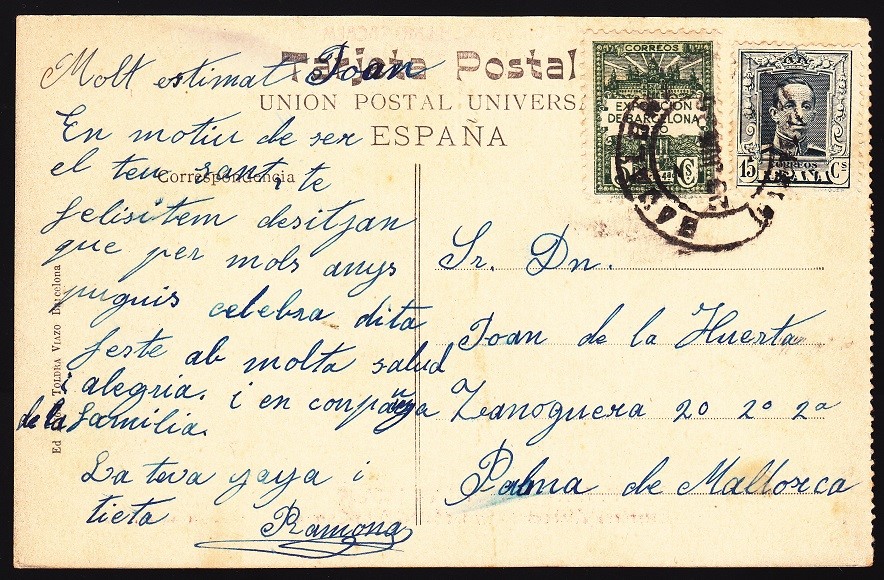 Tarjeta Postal
UNION POSTAL UNIVERSAL
ESPAÑA
Correspondencia
Molt estimat Joan
En motiu de ser
el teu sant, te
felisitem desitjan
que per mols anys
puguis celebra dita
feste ab molta salud
i alegria. i en conpañya
de la familia.
La teva yaya i
tieta
Ramona
CORREOS
EXPOSICION
DE BARCELONA
CORREOS
ESPAÑA
15 Cs
Sr. Dn.
Joan de la Huerta
Zanoguera 20 2o 2a
Palma de Mallorca
TOLDRA VIAZO Barcelona